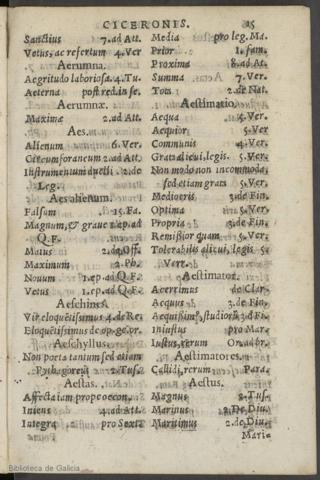 CICERONIS. 25
Sanctius 7. ad Att.
Vetus, ac refertum 4. Ver
Aerumna.
Aegritudo laboriosa. 4. Tu.
Aeterna post red. in se.
Aerumnæ.
Maximæ 2. ad Att.
Aes.
Alienum 6. Ver.
Circumforaneum 2. ad Att.
Instrumentum 2. de
Leg.
Aes alienum.
Falsum 15. Fa.
Magnum, & graue 1. ep. ad
Q. F.
Maius 2. de Off.
Maximum 2. Ph.
Nouum 1. ep. ad Q. F.
Vetus 1. ep. ad Q. F.
Aeschines.
Vir eloquētissimus 4. de Re.
Eloquētissimus de op. ge. or.
Aeschyllus.
Non poeta tantum sed etiam
Pythagoreus 2. Tus.
Aestas.
Affecta iam prope oecon.
Iniens 4. ad Att.
Integra pro Sext.
Media pro leg. Ma.
Prior 1. fam.
Proxima 8. ad At.
Summa 7. Ver.
Tota 2. de Nat.
Aestimatio.
Aequa 5. Ver.
Aequior 5. Ver
Communis 4. Ver.
Grata alicui, legis. 5. Ver.
Non modo non incommoda,
sed etiam grata 5. Ver.
Mediocris 3. de Fin.
Optima 5. Ver.
Propria 3. de Fin.
Remissior quam 5. Ver.
Tolerabilis alicui, legis 5.
Verr.
Aestimator.
Acerrimus de Clar.
Aequus 3. de Fin.
Aequissim⁹, studiorū 3. d Fi
Iniustus pro Mar.
Iustus, rerum Or. ad br.
Aestimatores.
Callidi, rerum Para.
Aestus.
Magnus 2. Tus.
Marinus 2. De Diu.
Maritimus 2. de Diu.
Mari⸗
Biblioteca de Galicia